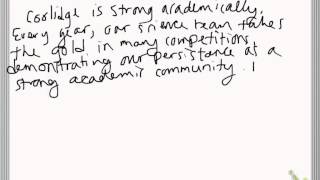 Coolidge is strong academically.
Every year, our science team takes
the gold in many competitions
demonstrating our persistance at a
strong academic community. I